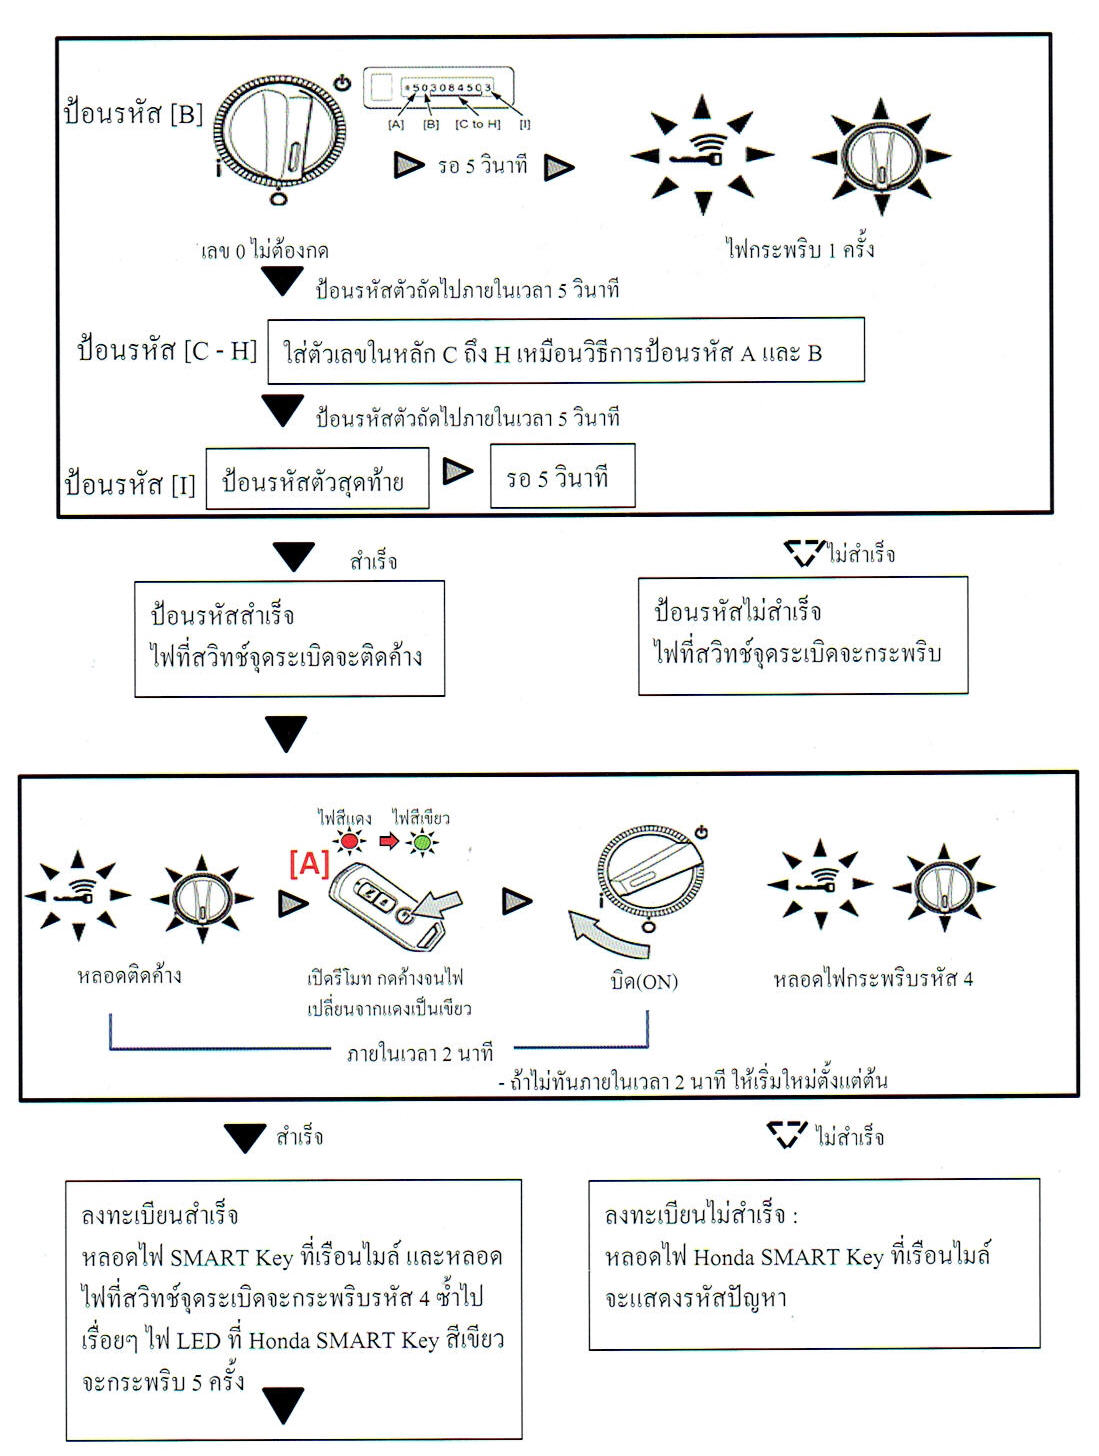 ป้อนรหัส [B]
*503084503
[A] [B] [C to H] [I]
รอ 5 วินาที
เลข 0 ไม่ต้องกด
ไฟกระพริบ 1 ครั้ง
ป้อนรหัสตัวถัดไปภายในเวลา 5 วินาที
ป้อนรหัส [C - H]
ใส่ตัวเลขในหลัก C ถึง H เหมือนวิธีการป้อนรหัส A และ B
ป้อนรหัสตัวถัดไปภายในเวลา 5 วินาที
ป้อนรหัส [I]
ป้อนรหัสตัวสุดท้าย
รอ 5 วินาที
สำเร็จ
ไม่สำเร็จ
ป้อนรหัสสำเร็จ
ไฟที่สวิทช์จุดระเบิดจะติดค้าง
ป้อนรหัสไม่สำเร็จ
ไฟที่สวิทช์จุดระเบิดจะกระพริบ
ไฟสีแดง ไฟสีเขียว
[A]
หลอดติดค้าง
เปิดรีโมท กดค้างจนไฟ
เปลี่ยนจากแดงเป็นเขียว
บิด(ON)
หลอดไฟกระพริบรหัส 4
ภายในเวลา 2 นาที
- ถ้าไม่ทันภายในเวลา 2 นาที ให้เริ่มใหม่ตั้งแต่ต้น
สำเร็จ
ไม่สำเร็จ
ลงทะเบียนสำเร็จ
หลอดไฟ SMART Key ที่เรือนไมล์ และหลอด
ไฟที่สวิทช์จุดระเบิดจะกระพริบรหัส 4 ซ้ำไป
เรื่อยๆ ไฟ LED ที่ Honda SMART Key สีเขียว
จะกระพริบ 5 ครั้ง
ลงทะเบียนไม่สำเร็จ :
หลอดไฟ Honda SMART Key ที่เรือนไมล์
จะแสดงรหัสปัญหา